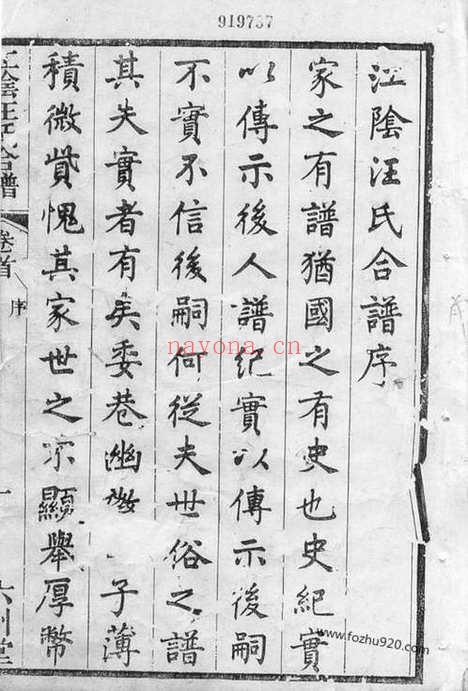 919737
江陰汪氏合譜序
家之有譜猶國之有史也史紀實
以傳示後人譜紀實以傳示後嗣
不實不信後嗣何從夫世俗之譜
其失實者有矣委巷幽 子薄
積微貲愧其家世之不顯舉厚幣
江陰汪氏合譜
卷首
序
一
六州堂
nayona.cn
www.fozhu920.com